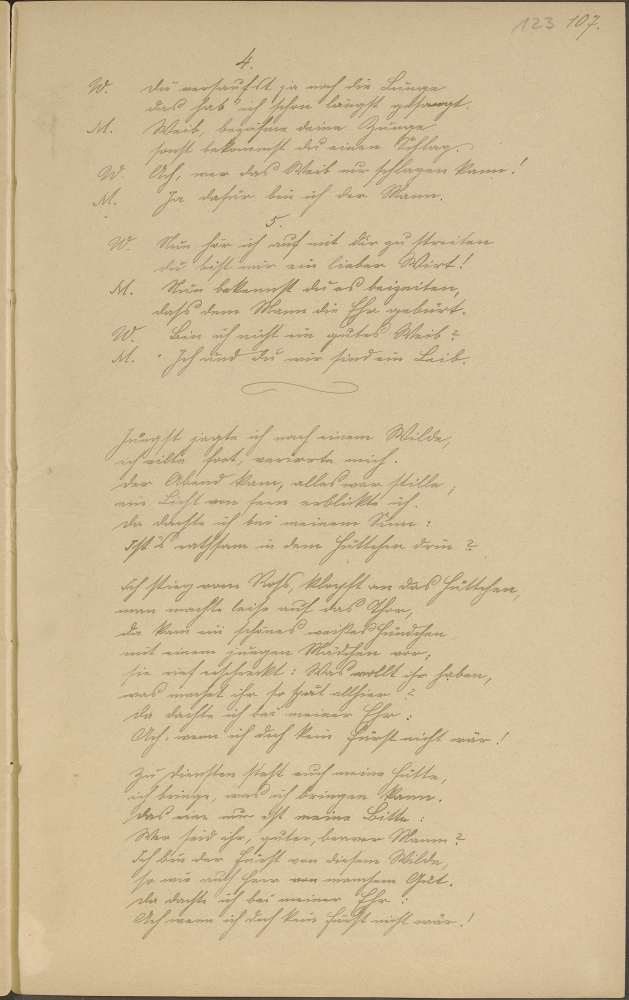 123 107.
4.
W. Du versaufst ja noch die Lunge
das hab' ich schon längst gesagt.
M. Weib, bezähme deine Zunge
sonst bekommst du einen Schlag.
W. Ach, wer das Weib nur schlagen kann!
M. Ja dafür bin ich der Mann.
5.
W. Nun hör ich auf mit dir zu streiten
du bist mir ein lieber Wirt!
M. Nun bekennst du es beizeiten,
dass dem Mann die Ehr gebürt.
W. Bin ich nicht ein gutes Weib?
M. Ich und Du wir sind ein Leib.
Jüngst jagte ich nach einem Wilde,
ich eilte fort, verirrte mich.
der Abend kam, alles war stille;
ein Licht von fern erblickte ich.
da dachte ich bei meinem Sinn:
Ist's rathsam in dem Hüttchen drin?
Ich stieg vom Ross, klopft an das Hüttchen,
man machte leise auf das Thor,
da kam ein schönes weißes Hündchen
mit einem jungen Mädchen vor;
sie rief erschreckt: Was wollt ihr haben,
was machet ihr so spät allhier?
da dachte ich bei meiner Ehr:
Ach, wenn ich doch kein Fürst nicht wär!
Zu diensten steht euch meine Hütte,
ich bringe, was ich bringen kann.
das eine nur ist meine Bitte:
Wer seid ihr, guter, braver Mann?
Ich bin der Fürst von diesem Wilde,
so wie auch Herr von manchem Gut.
da dachte ich bei meiner Ehr:
Ach wenn ich doch kein Fürst nicht wär!